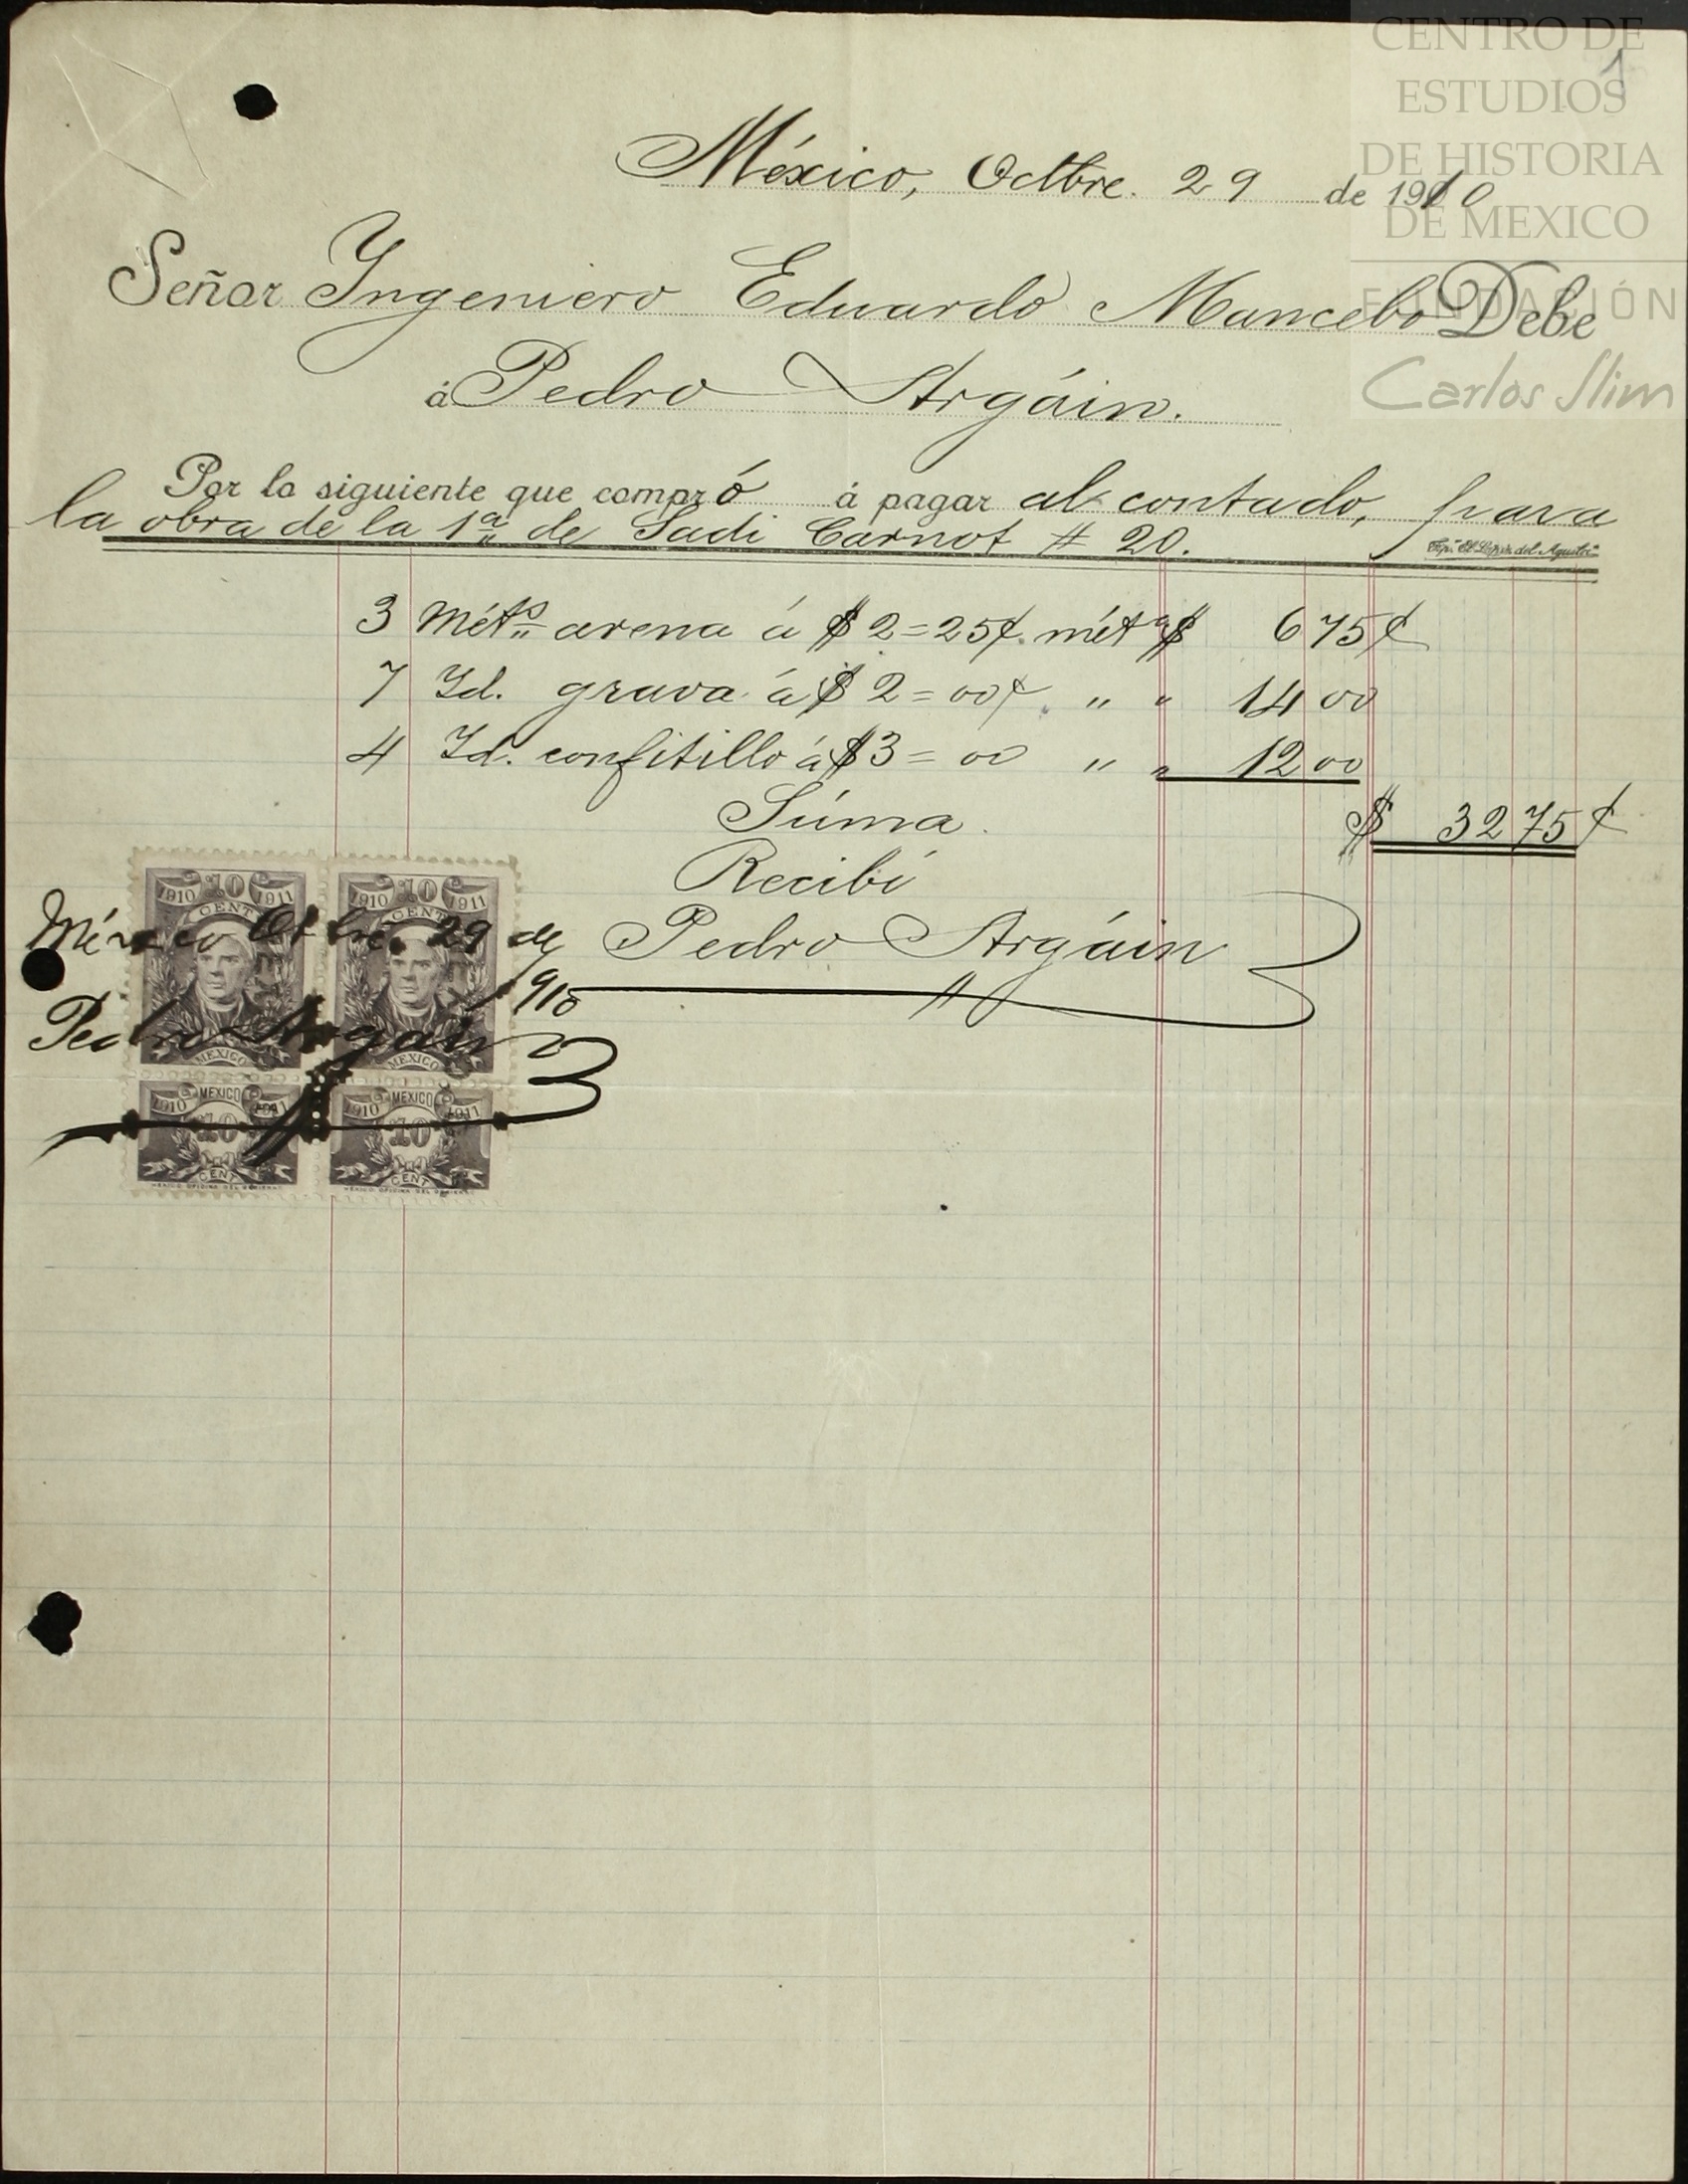 CENTRO DE
ESTUDIOS
DE HISTORIA
DE MEXICO
FUNDACIÓN
Carlos Slim
1
México, Octbre. 29 de 1910
Señor Ingeniero Eduardo Mancebo Debe
á Pedro Argáin.
Por lo siguiente que compró á pagar al contado, para
la obra de la 1ª de Sadi Carnot # 20.
3 Méts arena á $ 2=25¢. mét " $ 6 75¢
7 Id. grava á $ 2=00¢. " " 14 00
4 Id. confitillo á $3=00 " " 12 00
Súma. $ 32 75¢
Recibí
Pedro Argáin
México Otbre. 29 de
1910
Pedro Argáin
1910 10 1911
CENT
MEXICO
1910 10 1911
CENT
MEXICO
1910 MEXICO 1911
10
CENT
1910 MEXICO 1911
10
CENT